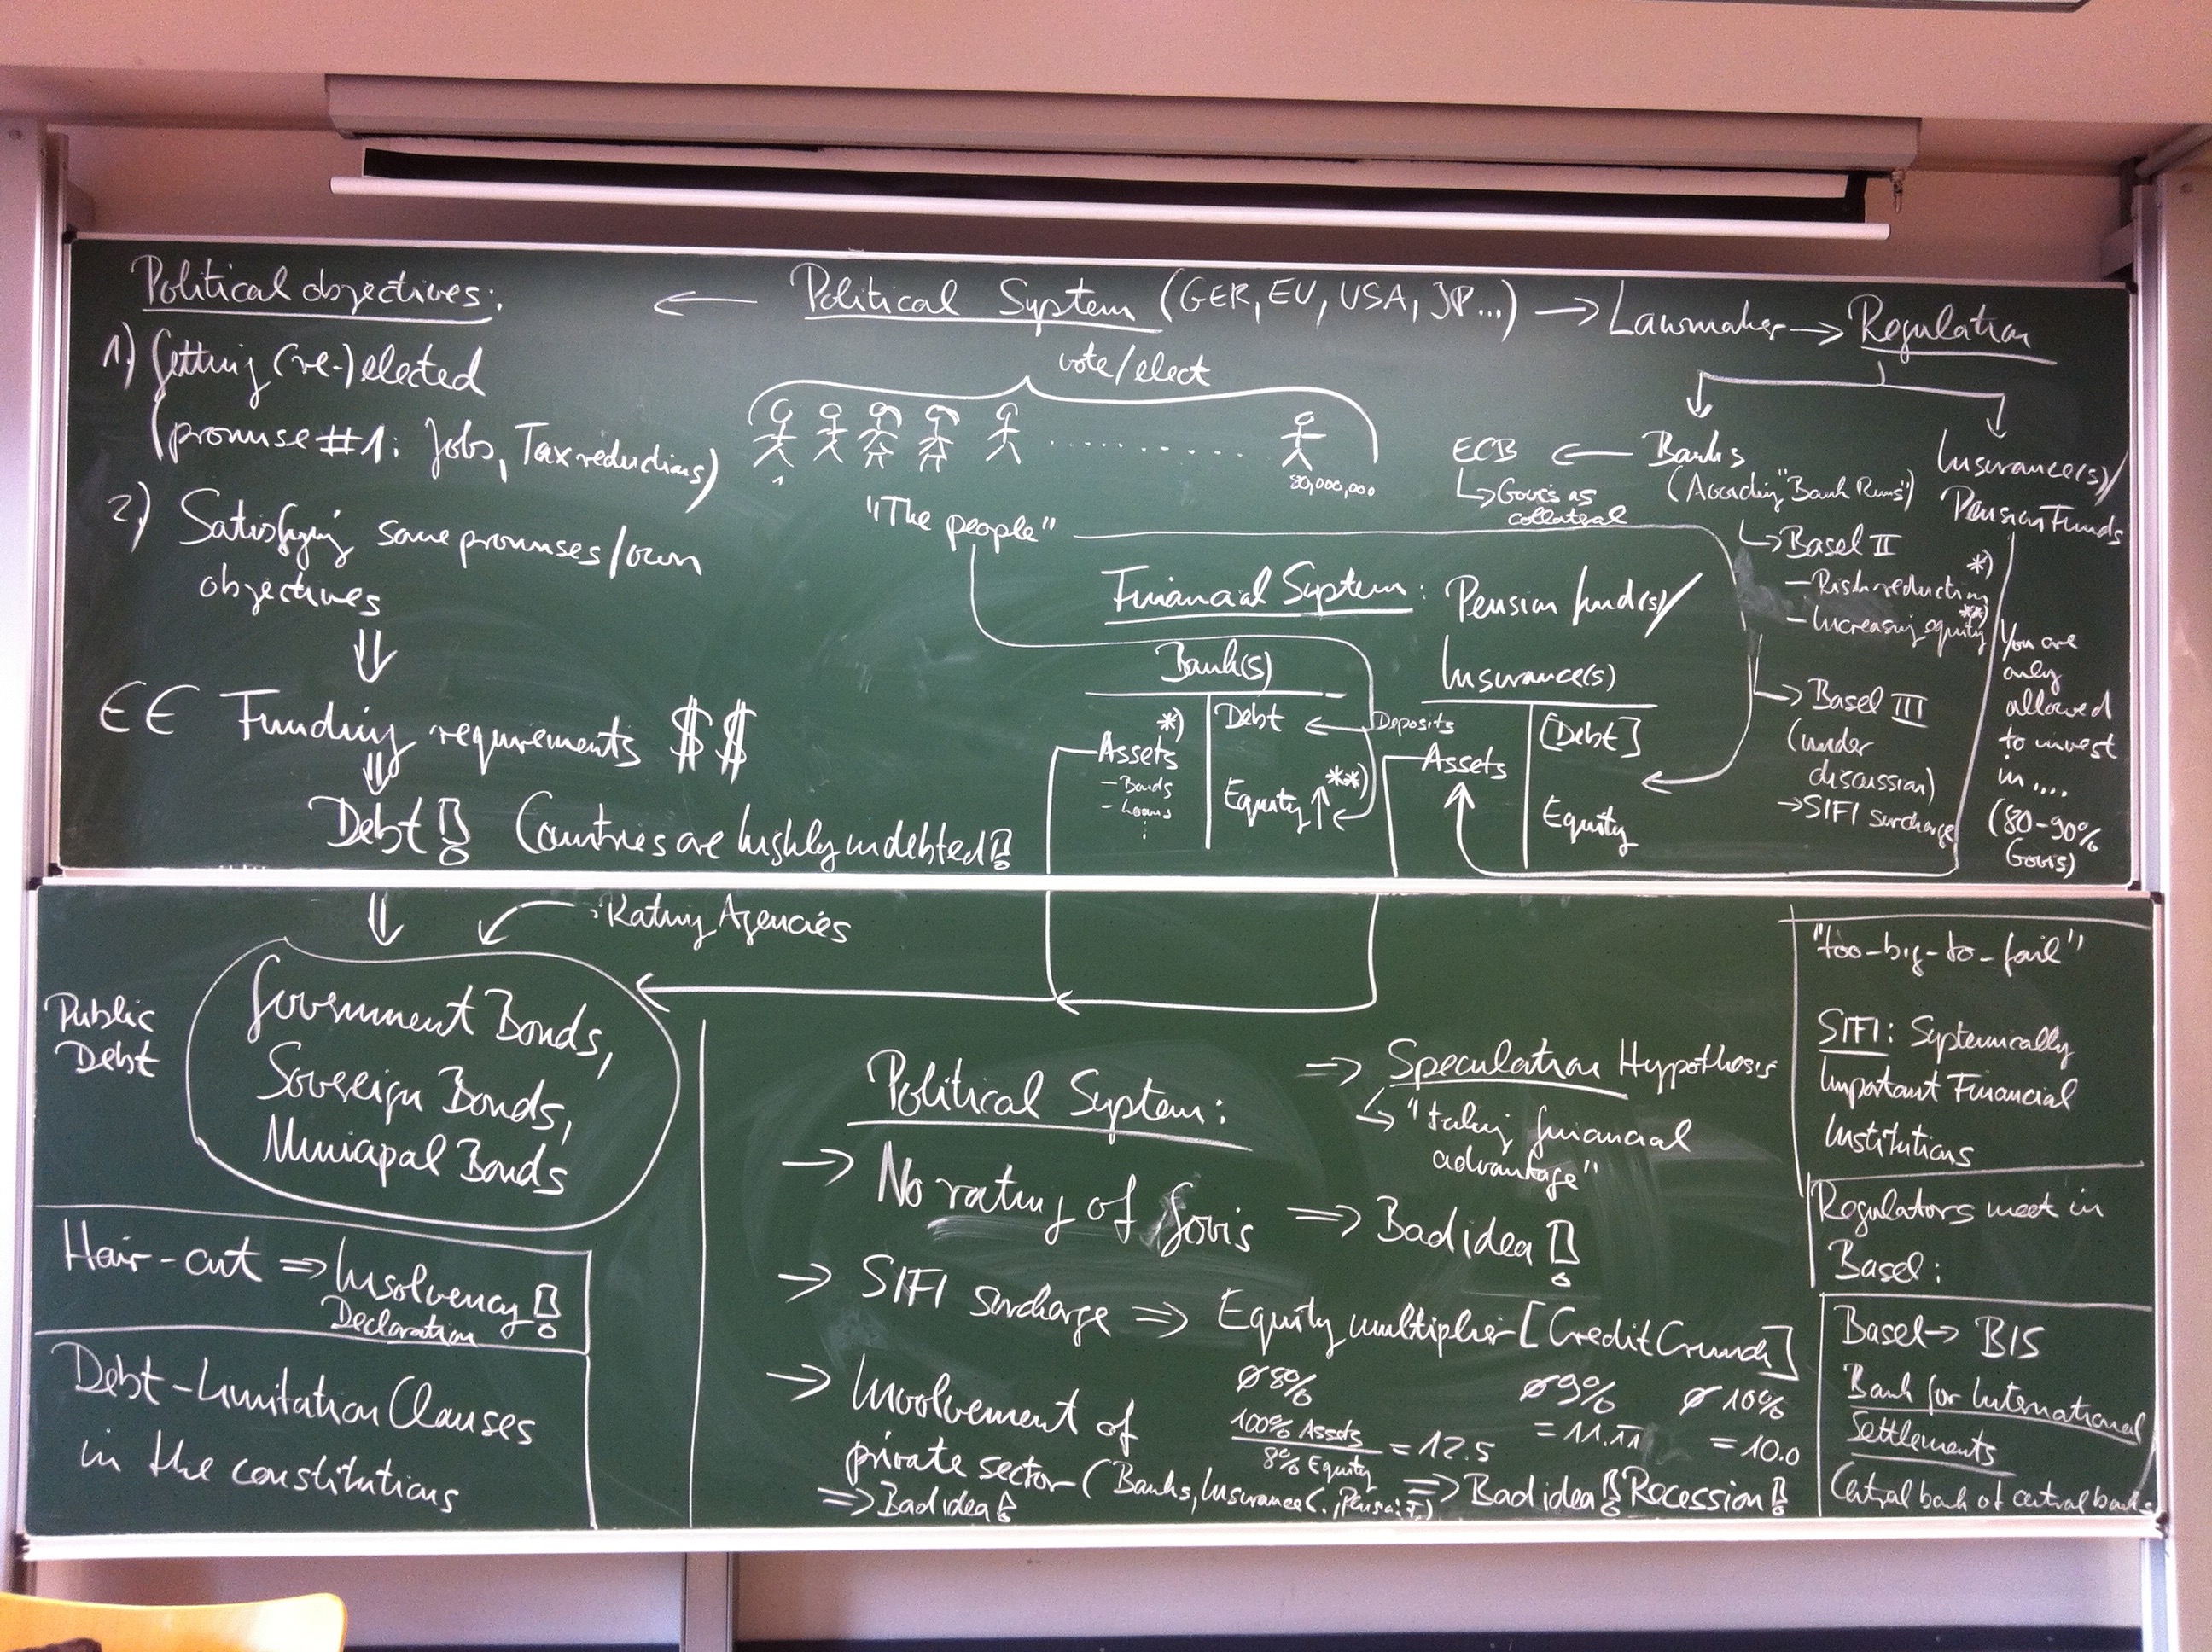 Political objectives:
1) Getting (re-)elected
(promise #1: Jobs, Tax reductions)
2) Satisfying some promises/own
objectives
⇓
€€ Funding requirements $$
⇓
Debt! Countries are highly indebted!
← Political System (GER, EU, USA, JP...) → Lawmaker → Regulation
vote/elect
1
80,000,000
"The people"
ECB ← Banks
↳ Govi's as
collateral
(Avoiding "Bank Runs")
↳ Basel II
- Risk reduction *)
- Increasing equity **)
→ Basel III
(under
discussion)
→ SIFI surcharge
Insurance(s)/
Pension Funds
You are
only
allowed
to invest
in....
(80-90%
Govis)
Financial System: Pension fund(s)/
Bank(s)
Assets *)
- Bonds
- Loans
Debt ← Deposits
Equity ↑ **)
Insurance(s)
Assets
[Debt]
Equity
⇓
Rating Agencies
Public
Debt
Government Bonds,
Sovereign Bonds,
Municipal Bonds
Hair-cut ⇒ Insolvency!
Declaration
Debt-Limitation Clauses
in the constitutions
Political System:
⇒ Speculation Hypothesis
↳ "taking financial
advantage"
→ No rating of Govis ⇒ Bad idea!
→ SIFI surcharge ⇒ Equity multiplier [Credit Crunch]
ø8% ø9% ø10%
100% Assets
8% Equity
= 12.5 = 11.11 = 10.0
→ Involvement of
private sector (Banks, Insurance
⇒ Bad idea!
⇒ Bad idea! Recession!
"too-big-to-fail"
SIFI: Systemically
Important Financial
Institutions
Regulators meet in
Basel:
Basel → BIS
Bank for International
Settlements
Central bank of central banks